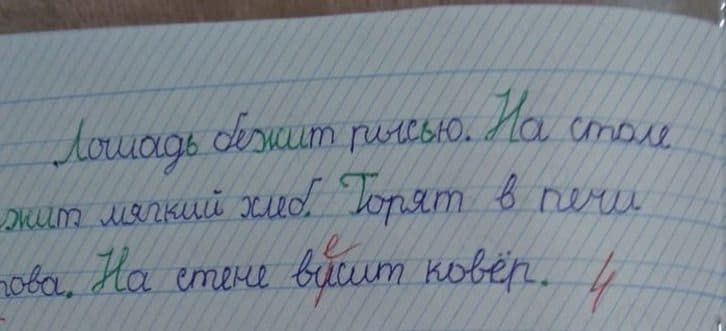 Лошадь бежит рысью. На столе
жит мягкий хлеб. Горят в печи
е
ова. На стене висит ковёр. 4